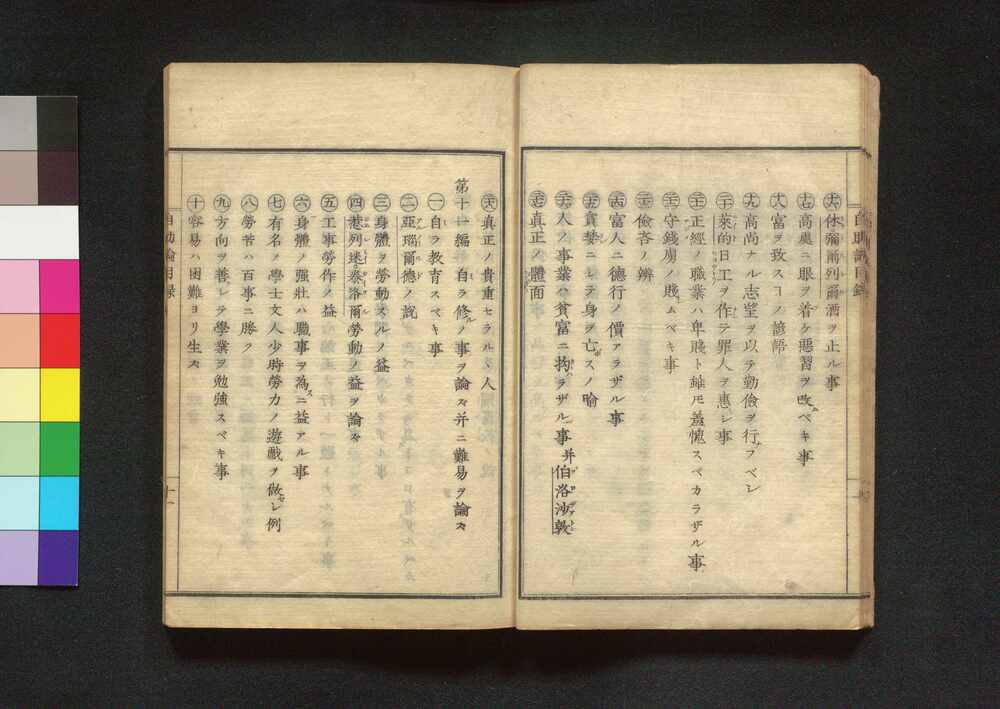 自助論目録
㊅休爾列爾酒ヲ止ル事
㊆高處ニ眼ヲ着ケ惡習ヲ改ムベキ事
㊇富ヲ致スコノ諺語
㊈高尚ナル志望ヲ以テ勤儉ヲ行フベシ
㊁萊的日工ヲ作テ罪人ヲ惠シ事
正經ノ職業ハ卑賤ト雖モ羞愧スベカラザル事
守錢虜ノ賤ムベキ事
儉吝ノ辨
富人ニ德行ノ價アラザル事
貪婪ニシテ身ヲ亡スノ喻
人ノ事業ハ貧富ニ拘ラザル事并伯洛沙敦
真正ノ體面
真正ノ貴重セラルヽ人
第十一編 自ラ修ルノ事ヲ論ズ并ニ難易ヲ論ズ
㊀自ラ教育スベキ事
㊁亞瑙爾德ノ說
㊂身體ヲ勞動スルノ益
㊃惹列迷泰洛爾勞動ノ益ヲ論ズ
㊄工事勞作ノ益
㊅身體ノ强壯ハ職事ヲ為スニ益アル事
㊆有名ノ學士文人少時勞力ノ遊戲ヲ做セシ例
㊇勞苦ハ百事ニ勝ク
㊈方向ヲ善シテ學業ヲ勉強スベキ事
㊉容易ハ困難ヨリ生ズ
自助論目録 十一